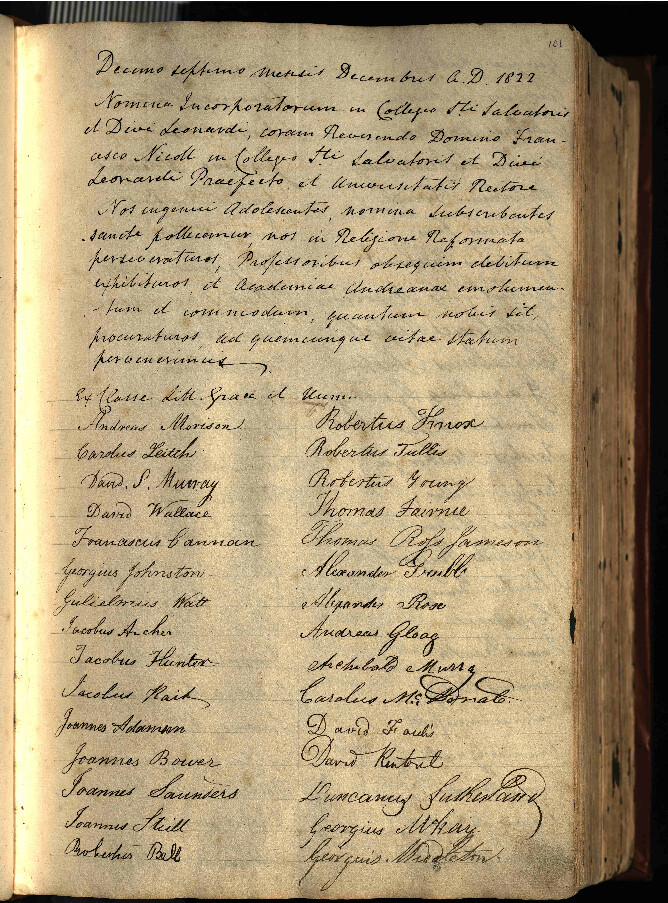 101
Decimo septimo mensis Decembris A.D. 1822
Nomina Incorporatorum in Collegio Sti Salvatoris
et Divi Leonardi, coram Reverendo Domino Fran-
cisco Nicoll in Collegio Sti Salvatoris et Divi
Leonardi Praefecto, et Universitatis Rectore
Nos ingenui Adolescentes, nomina subscribentes
sancte pollicemur, nos in Religione Reformata
perseveraturos, Professoribus obsequium debitum
exhibituros, et Academiae Andreanae emolumen-
-tum et commodum, quantum nobis sit,
procuraturos, ad quemcunque vitae statum
pervenerimus
Ex Classe Litt. Graec et Hum.
Andreas Morison
Carolus Leitch
David. S. Murray
David Wallace
Franciscus Cannan
Georgius Johnston
Gulielmus Watt
Jacobus Archer
Jacobus Hunter
Jacobus Rait
Joannes Adamson
Joannes Bower
Joannes Saunders
Joannes Still
Robertus Bell
Robertus Knox
Robertus Tullis
Robertus Young
Thomas Fairnie
Thomas Ross Jameson
Alexander
Alexander Rose
Andreas Gloag
Archibald Murray
Carolus McDonald
David Faulds
David Rintoul
Duncanus Sutherland
Georgius McKay
Georgius Middleton